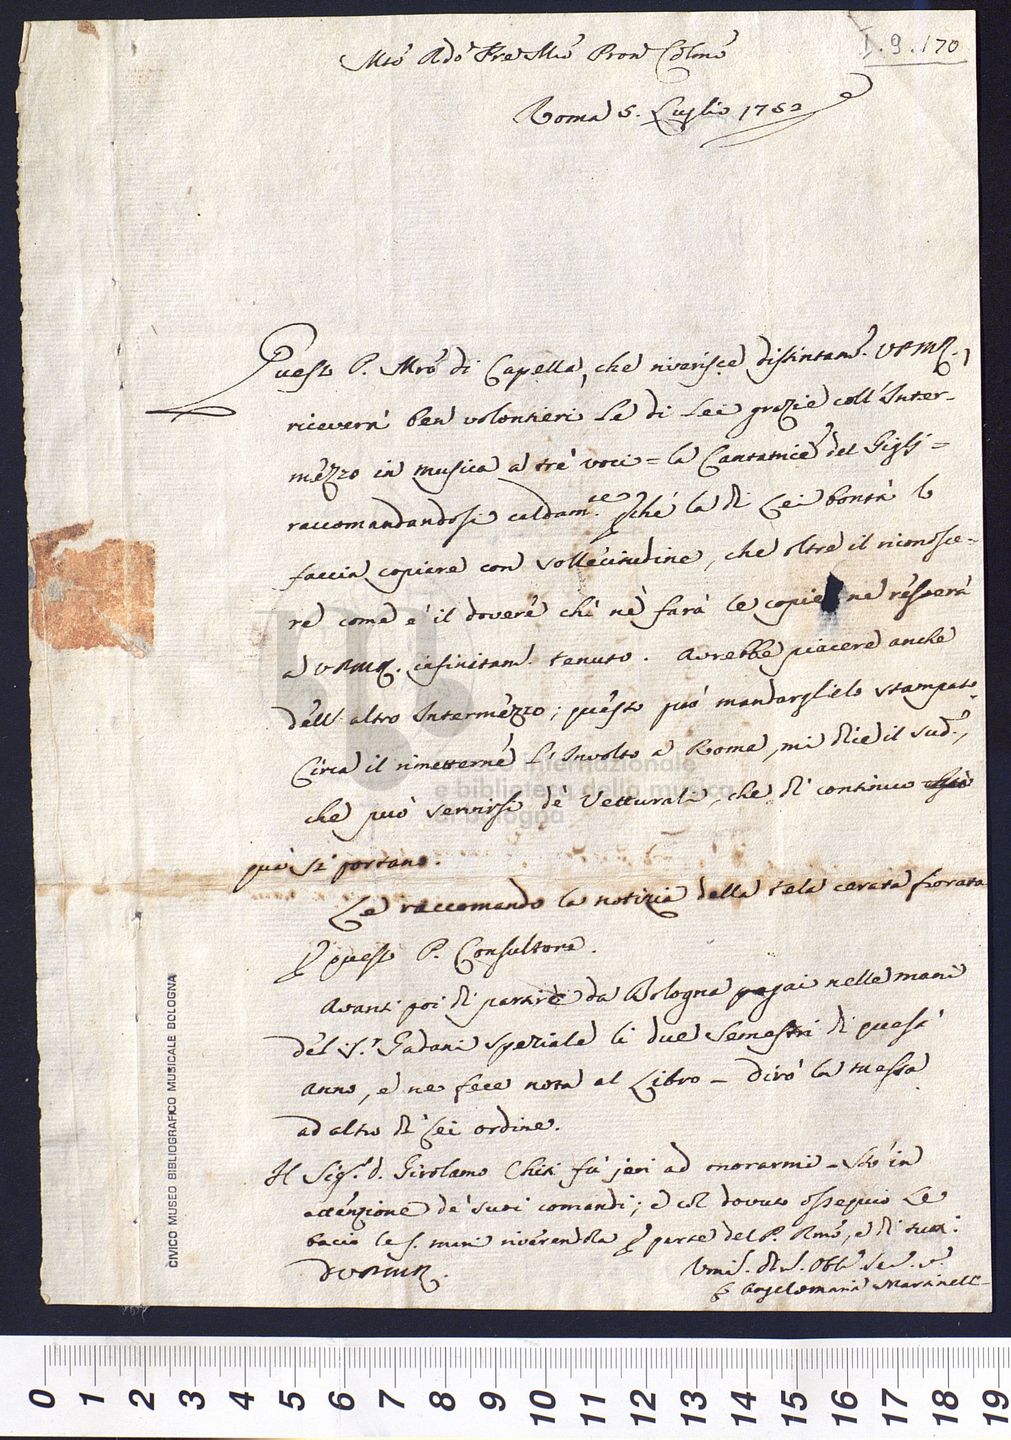 I.9.170
Mtõ Rdõ Pre Mrõ Pron Colmõ
Roma 5. Luglio 1752
Questo P. Mrõ di Capella, che riverisce distintam. VPMR.,
riceverà ben volontieri le di Lei grazie coll'Inter-
mezzo in musica a tre voci = la Cantatrice del Giglj =
raccomandandosi caldam.te pché la di Lei bontà lo
faccia copiare con sollecitudine, che oltre il riconosce-
re come è il dovere chi ne farà le copie ne resterà
a VPMR. infinitam. tenuto. Avrebbe piacere anche
dell'altro Intermezzo; questo può mandarglielo stampato
Circa il rimetterne l'Involto a Roma, mi dice il sud.,
che può servirsi de Vetturali, che di continuo
quà si portano.
Le raccomando la notizia della tela cerata fiorata
p questo P. Consultore.
Avanti poi di partire da Bologna pagai nelle mani
del S.r Gadani speziale li due Semestri di quest'
anno, e ne fece nota al Libro _ dirò la messa
ad altro di Lei ordine.
Il Sig.r D. Girolamo Chiti fù jeri ad onorarmi _ Stò in
attenzione de' suoi comandi; e col dovuto ossequio Le
bacio le s. mani riverendola p parte del P. Rmõ, e di tutti.
D VPMR.
Umil. di. Obb. Se. v.
F. Angelomaria Martinelli
CIVICO MUSEO BIBLIOGRAFICO MUSICALE BOLOGNA
museo internazionale
e biblioteca della musica
di bologna
0 1 2 3 4 5 6 7 8 9 10 11 12 13 14 15 16 17 18 19